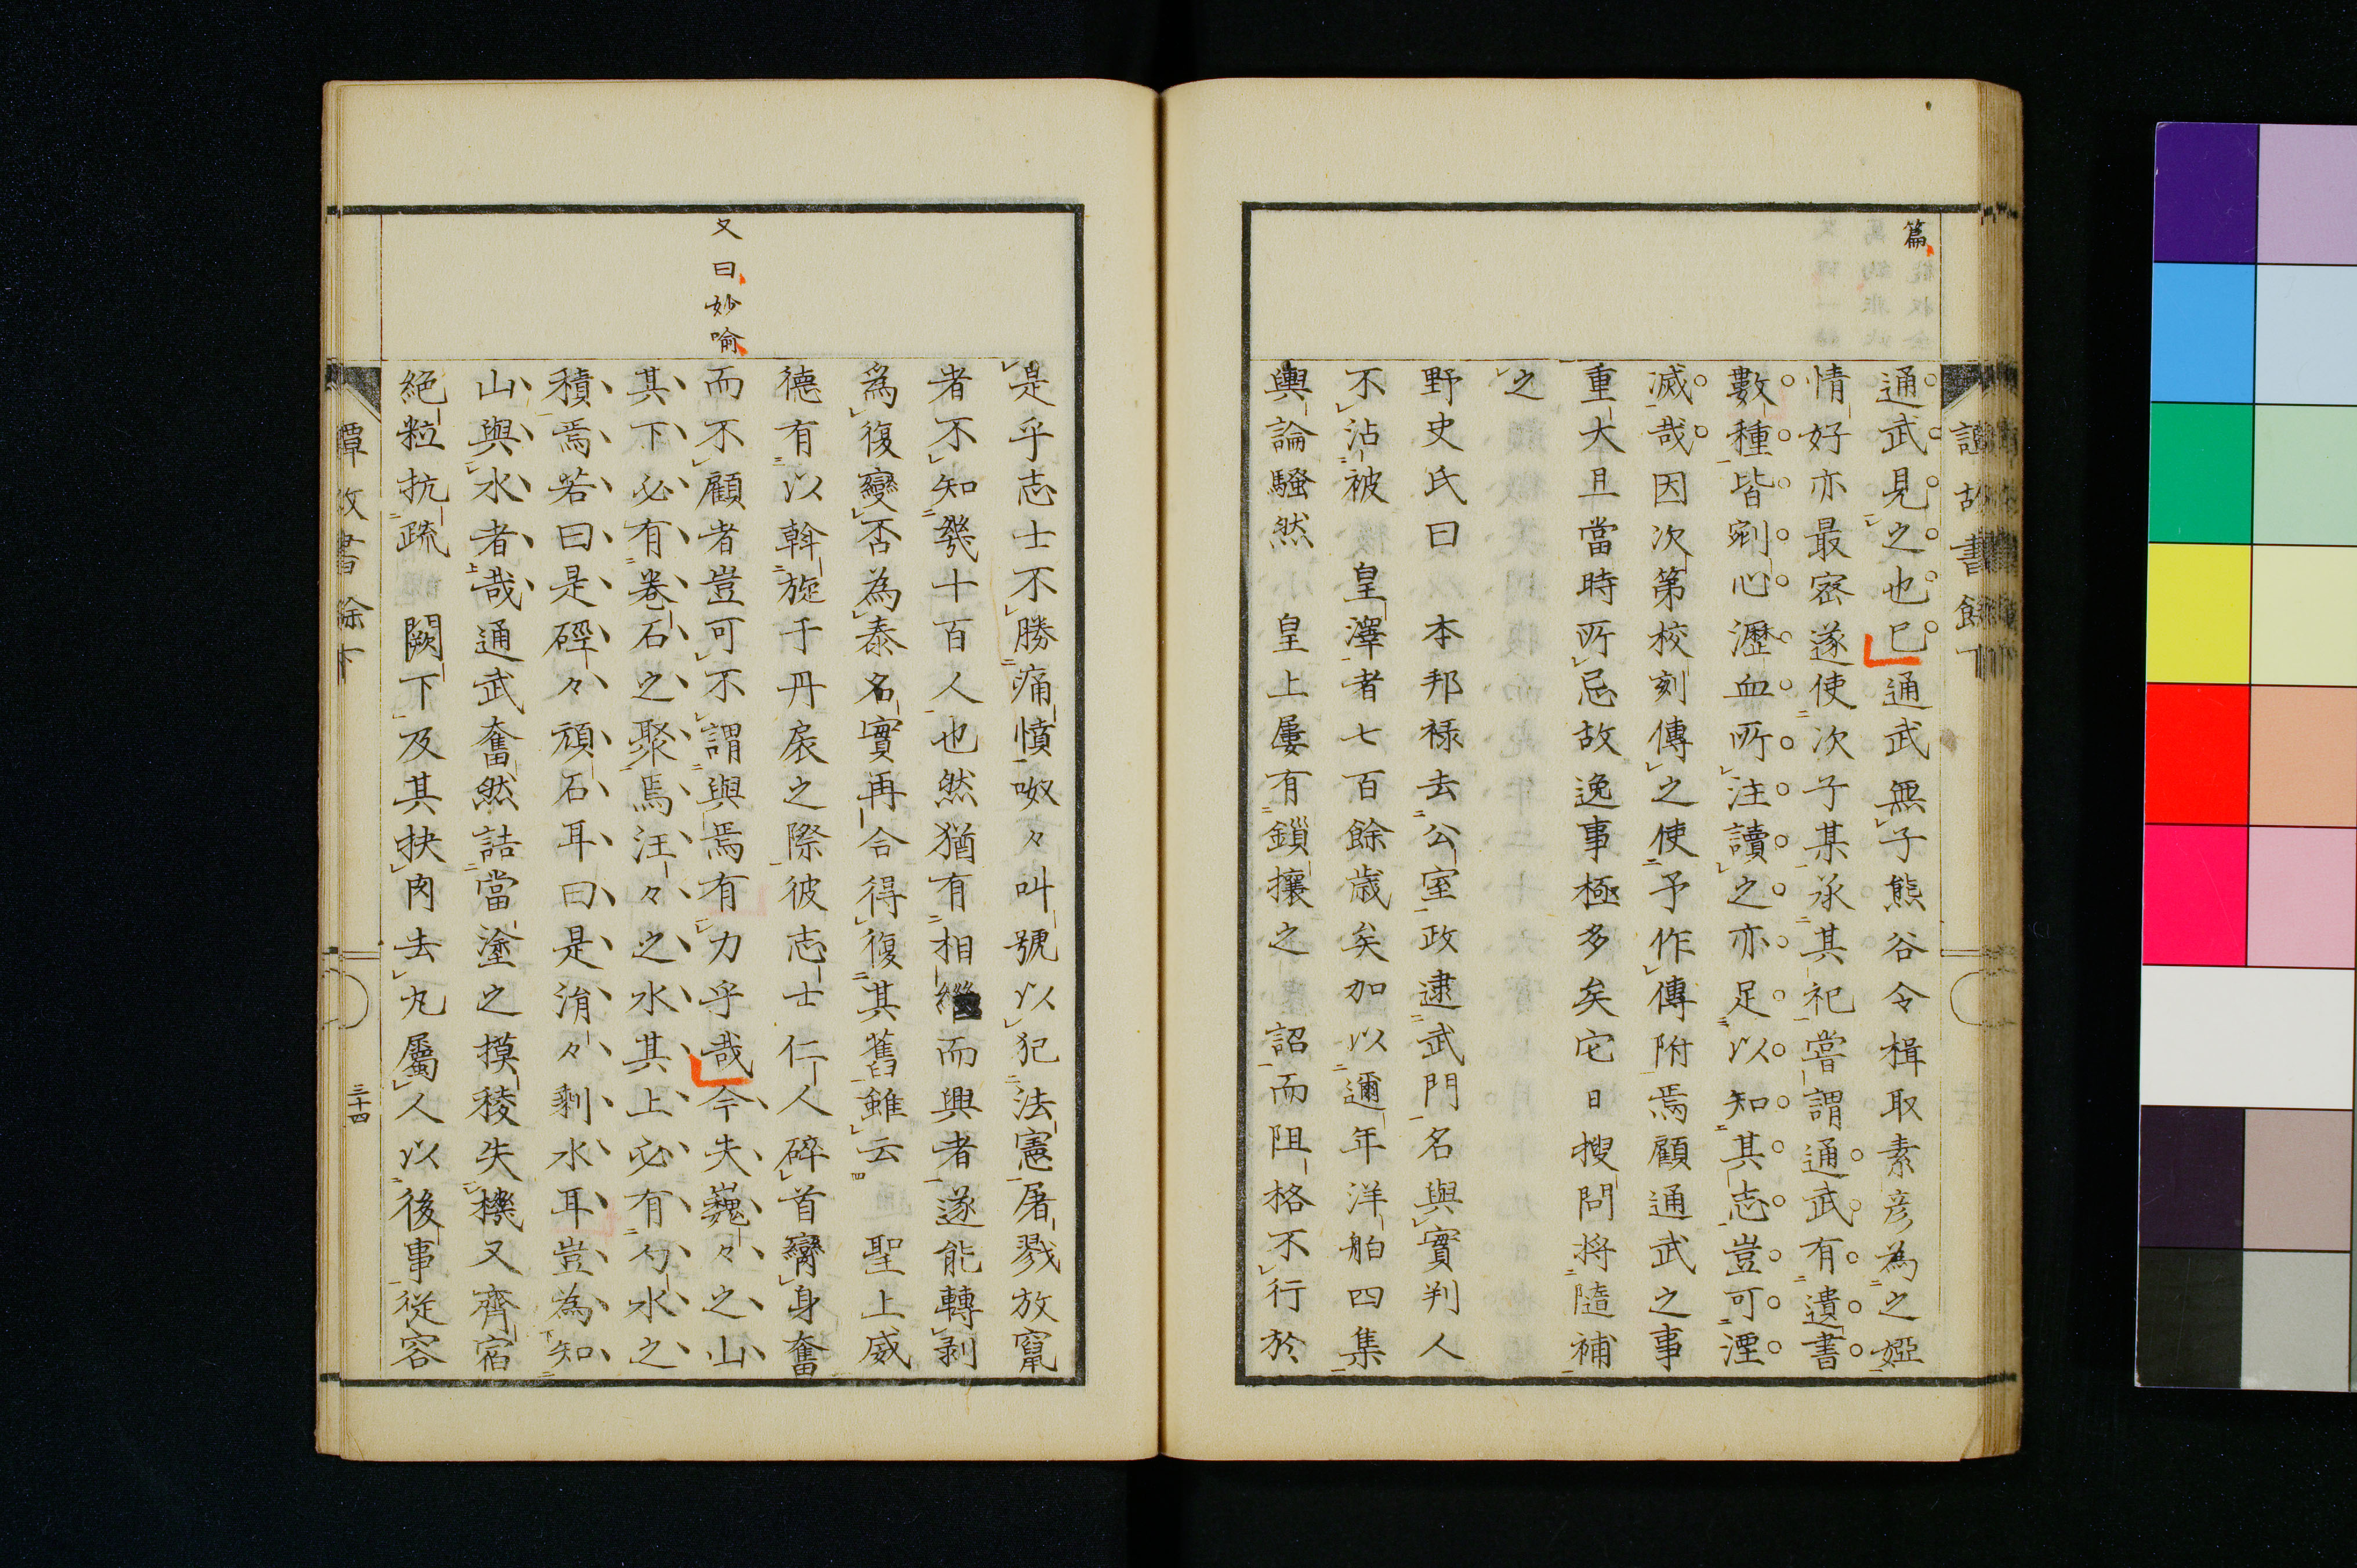 篇
通武見之也已通武無子熊谷令楫取素彦為之婭
情好亦最密遂使次子某承其祀嘗謂通武有遺書
數種皆剜心瀝血所注讀之亦足以知其志豈可湮
滅哉因次第校刻傳之使予作傳附焉顧通武之事
重大且當時所忌故逸事極多矣它日搜問將隨補
之
野史氏曰 本邦祿去公室政逮武門名與實判人
不沾被 皇澤者七百餘歳矣加以邇年洋舶四集
輿論騷然 皇上屢有鎖攘之 詔而阻格不行於
又曰妙喩
是乎志士不勝痛憤呶々叫號以犯法憲屠戮放竄
者不知幾十百人也然猶有相繼而興者遂能轉剥
為復變否為泰名實再合得復其舊雖云 聖上威
德有以斡旋于丹扆之際彼志士仁人碎首臠身奮
而不顧者豈可不謂與焉有力乎哉今夫巍々之山
其下必有卷石之聚焉汪々之水其上必有勺水之
積焉若曰是硜々頑石耳曰是涓々剩水耳豈為知
山與水者哉通武奮然詰當塗之摸稜失機又齊宿
絕粒抗疏 闕下及其抉肉去丸屬人以後事從容
三十四